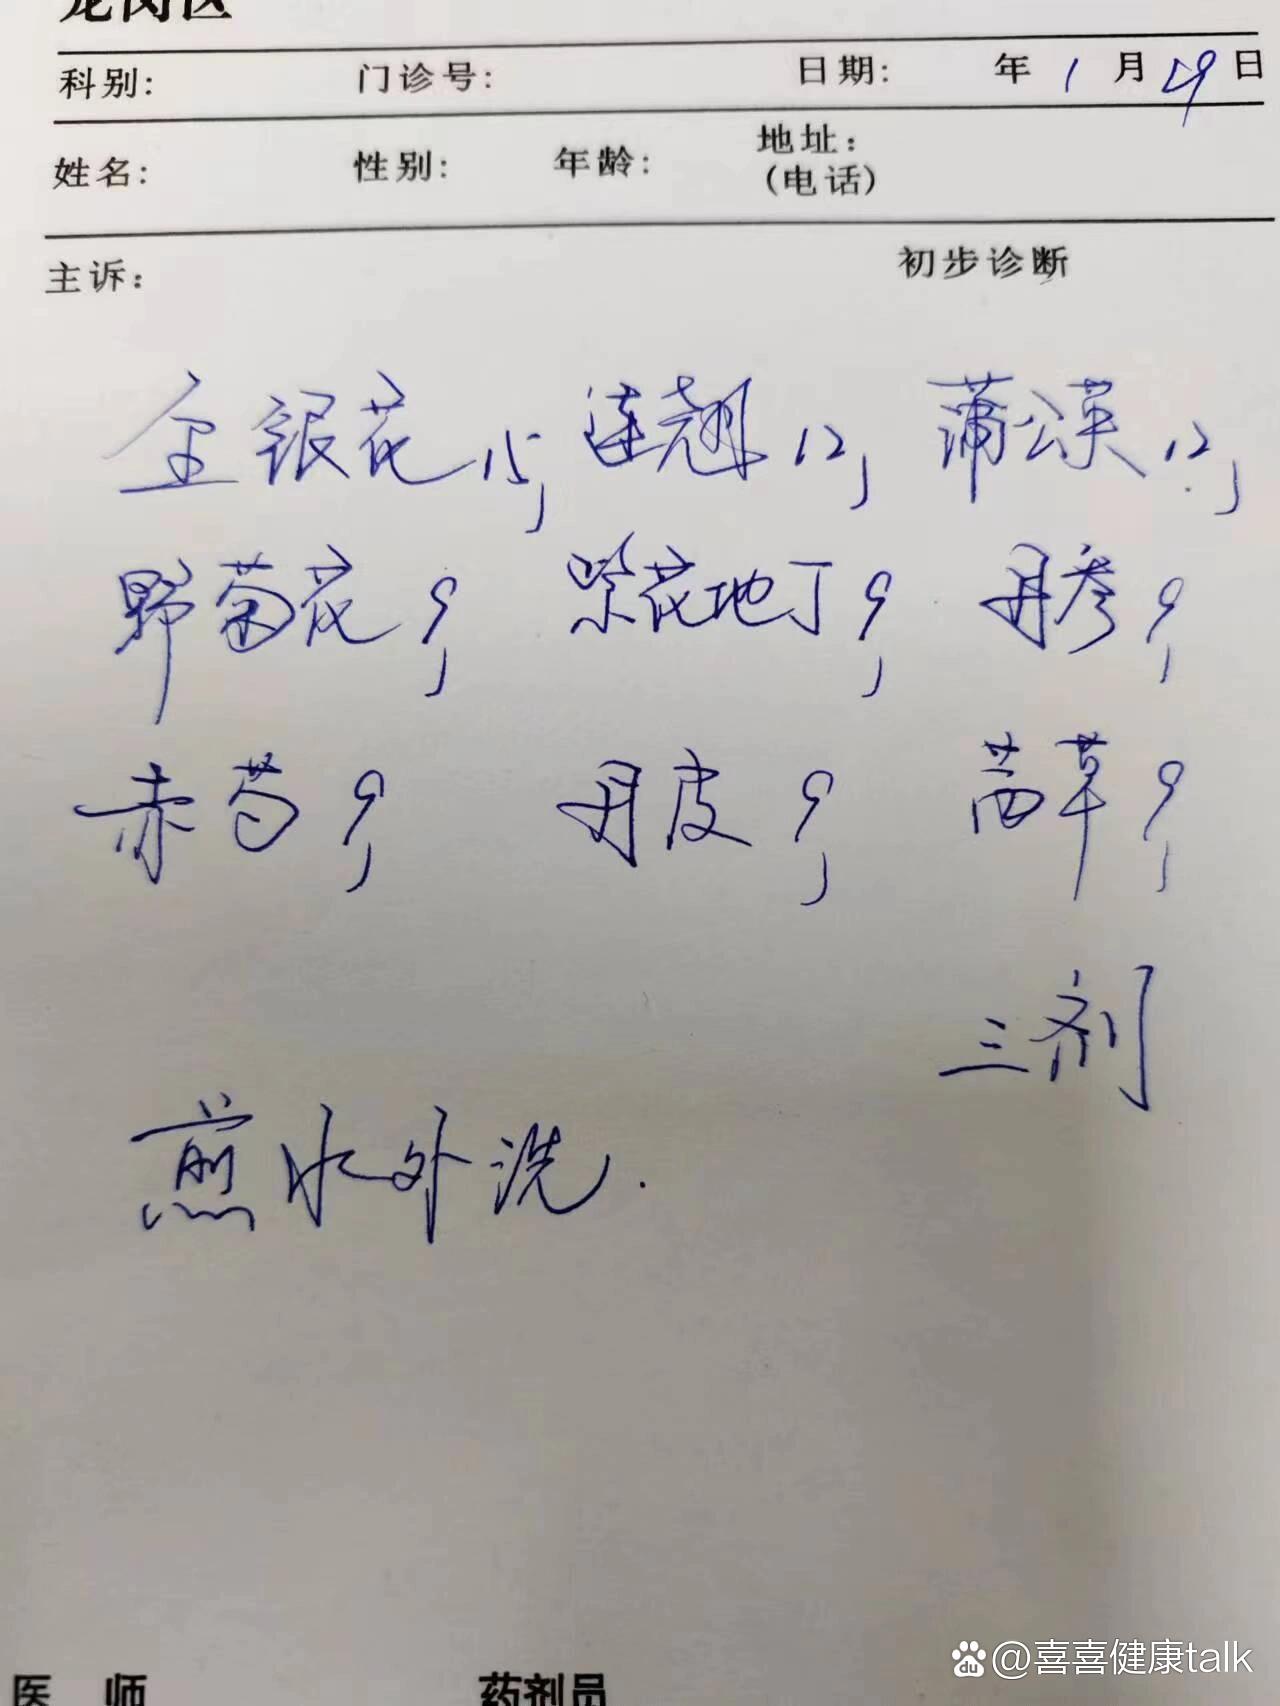 龙岗区
科别: 门诊号: 日期: 年 1 月 29 日
姓名: 性别: 年龄: 地址:
(电话)
主诉: 初步诊断
金银花15, 连翘12, 蒲公英12,
野菊花9, 紫花地丁9, 丹参9,
赤芍9, 丹皮9, 茜草9,
三剂
煎水外洗.
医 师 药剂员
du @喜喜健康talk